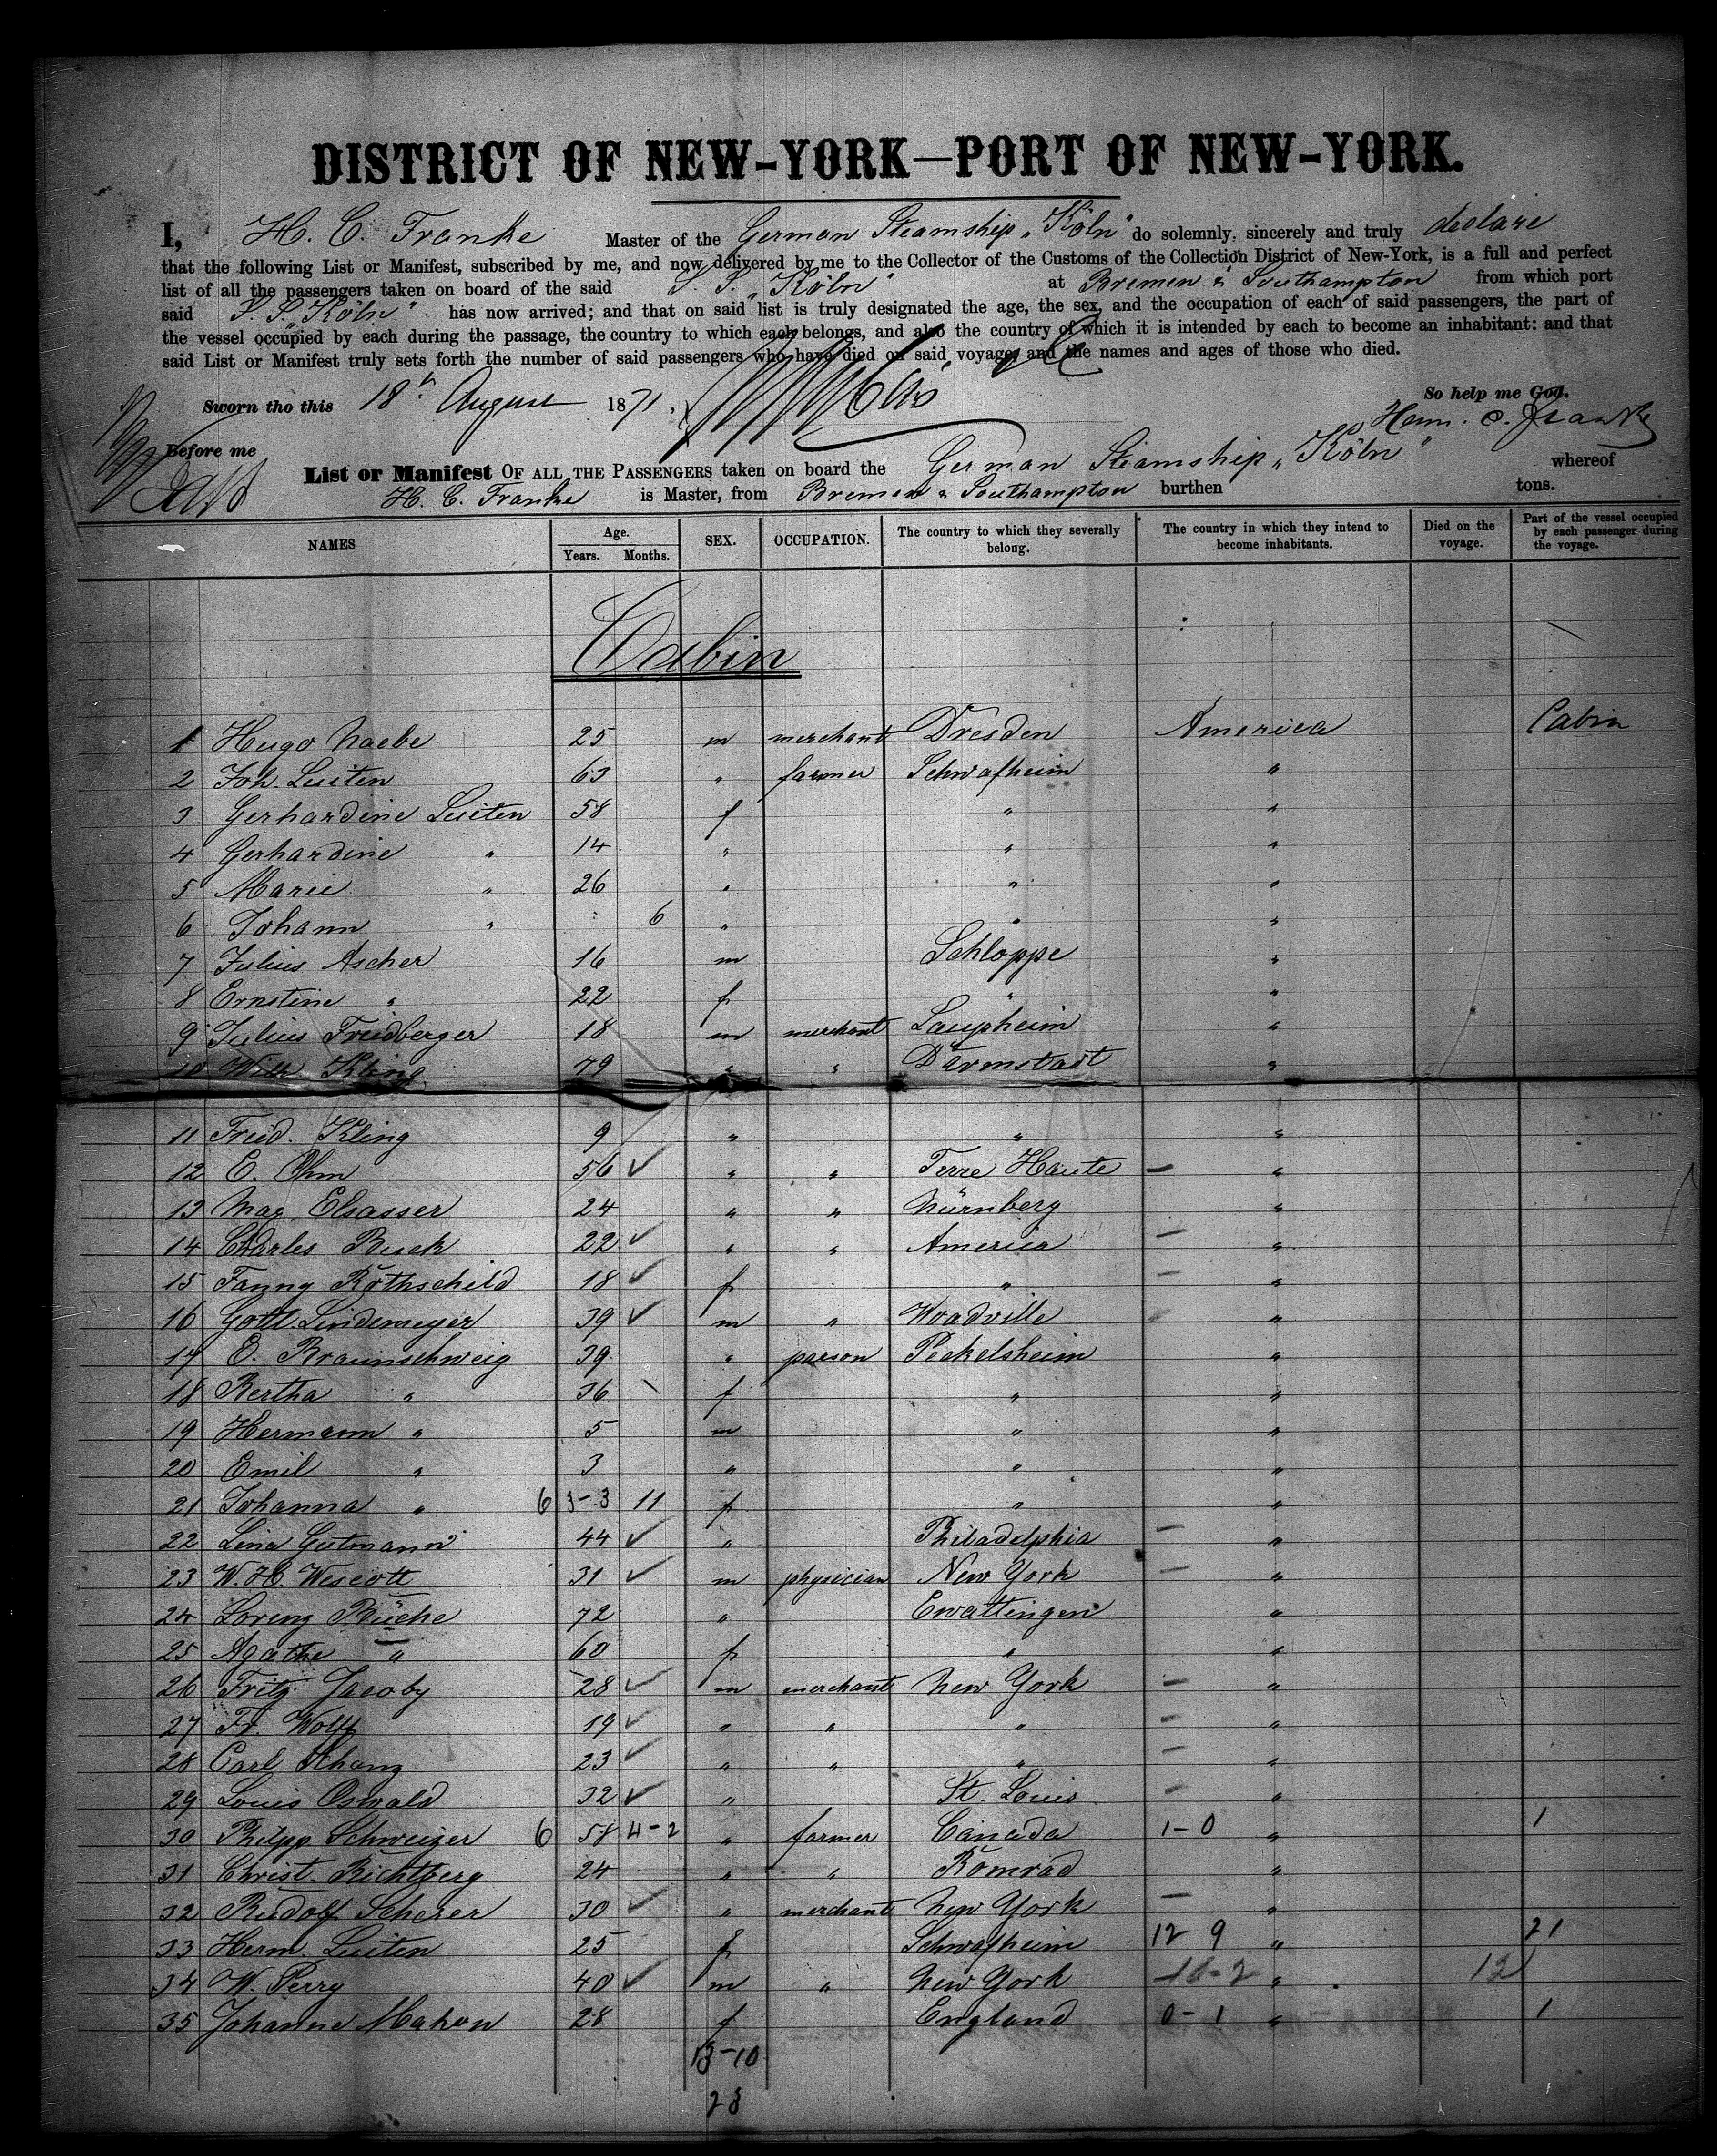 DISTRICT OF NEW-YORK—PORT OF NEW-YORK.
I, H. C. Franke Master of the German Steamship „Köln" do solemnly, sincerely and truly declare
that the following List or Manifest, subscribed by me, and now delivered by me to the Collector of the Customs of the Collection District of New-York, is a full and perfect
list of all the passengers taken on board of the said S. S. „Köln" at Bremen & Southampton from which port
said S. S. „Köln" has now arrived; and that on said list is truly designated the age, the sex, and the occupation of each of said passengers, the part of
the vessel occupied by each during the passage, the country to which each belongs, and also the country of which it is intended by each to become an inhabitant: and that
said List or Manifest truly sets forth the number of said passengers who have died on said voyage, and the names and ages of those who died.
So help me God.
Sworn tho this 18th August 1871,
Herm. C. Franke
Before me
List or Manifest OF ALL THE PASSENGERS taken on board the German Steamship „Köln" whereof
H. C. Franke is Master, from Bremen & Southampton burthen tons.
NAMES Age. Years. Months. SEX. OCCUPATION. The country to which they severally belong. The country in which they intend to become inhabitants. Died on the voyage. Part of the vessel occupied by each passenger during the voyage.
Cabin
1 Hugo Naebe 25 m merchant Dresden America Cabin
2 Joh. Luiten 63 " farmer Schwafheim "
3 Gerhardine Luiten 58 f " "
4 Gerhardine " 14 " " "
5 Marie " 26 " " "
6 Johann " 6 " " "
7 Julius Ascher 16 m Schloppe "
8 Ernstine " 22 f " "
9 Julius Friedberger 18 m merchant Laupheim "
10 Wilh Kling 79 " " Darmstadt "
11 Fried. Kling 9 " " "
12 E. Ohm 56 ✓ " " Terre Haute — "
13 Mag. Elsasser 24 " " Nürnberg "
14 Charles Buck 22 ✓ " " America — "
15 Fanny Rothschild 18 ✓ f " — "
16 Gottl. Lindemeyer 39 ✓ m " Woadville — "
17 E. Braunschweig 39 " parson Peckelsheim "
18 Bertha " 36 f " "
19 Hermann " 5 m " "
20 Emil " 3 " " "
21 Johanna " 6 3-3 11 f " "
22 Lina Gutmann 44 ✓ " Philadelphia — "
23 W. H. Wescott 31 ✓ m physician New York — "
24 Lorenz Büche 72 " Ewattingen "
25 Agathe " 60 f " "
26 Fritz Jacoby 28 ✓ m merchant New York — "
27 Fr. Wolff 19 ✓ " " " — "
28 Carl Schanz 23 ✓ " " " — "
29 Louis Oswald 32 ✓ " St. Louis — "
30 Philipp Schweizer 6 58 4-2 " farmer Canada 1-0 " 1
31 Christ. Richtberg 24 " " Romrad "
32 Rudolf Scherer 30 ✓ " merchant New York — "
33 Herm. Luiten 25 f Schwafheim 12 9 " 21
34 W. Perry 40 ✓ m " New York 10-2 " 12
35 Johanne Mahon 28 f England 0-1 " 1
13-10
28